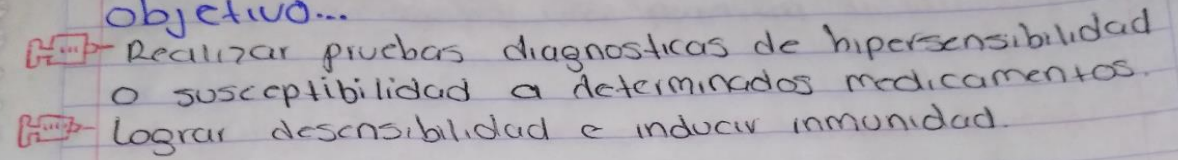 objetivo...
Realizar pruebas diagnosticas de hipersensibilidad
o susceptibilidad a determinados medicamentos.
Lograr desensibilidad e inducir inmunidad.